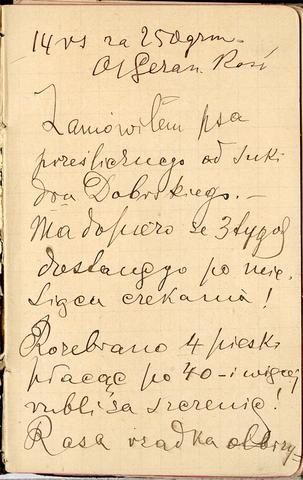 14 rs za 250 grm.
Ol Geran. Rosi
Zamówiłem psa
prześlicznego od suki
dra Dobrskiego. —
Ma dopiero ze 3 tygod
dostanę go po mie,
siącu czekania!
Rozebrano 4 pieski
płacąc po 40 - i więcej
rubli za szczenię!
Rasa rzadka olbrzy=